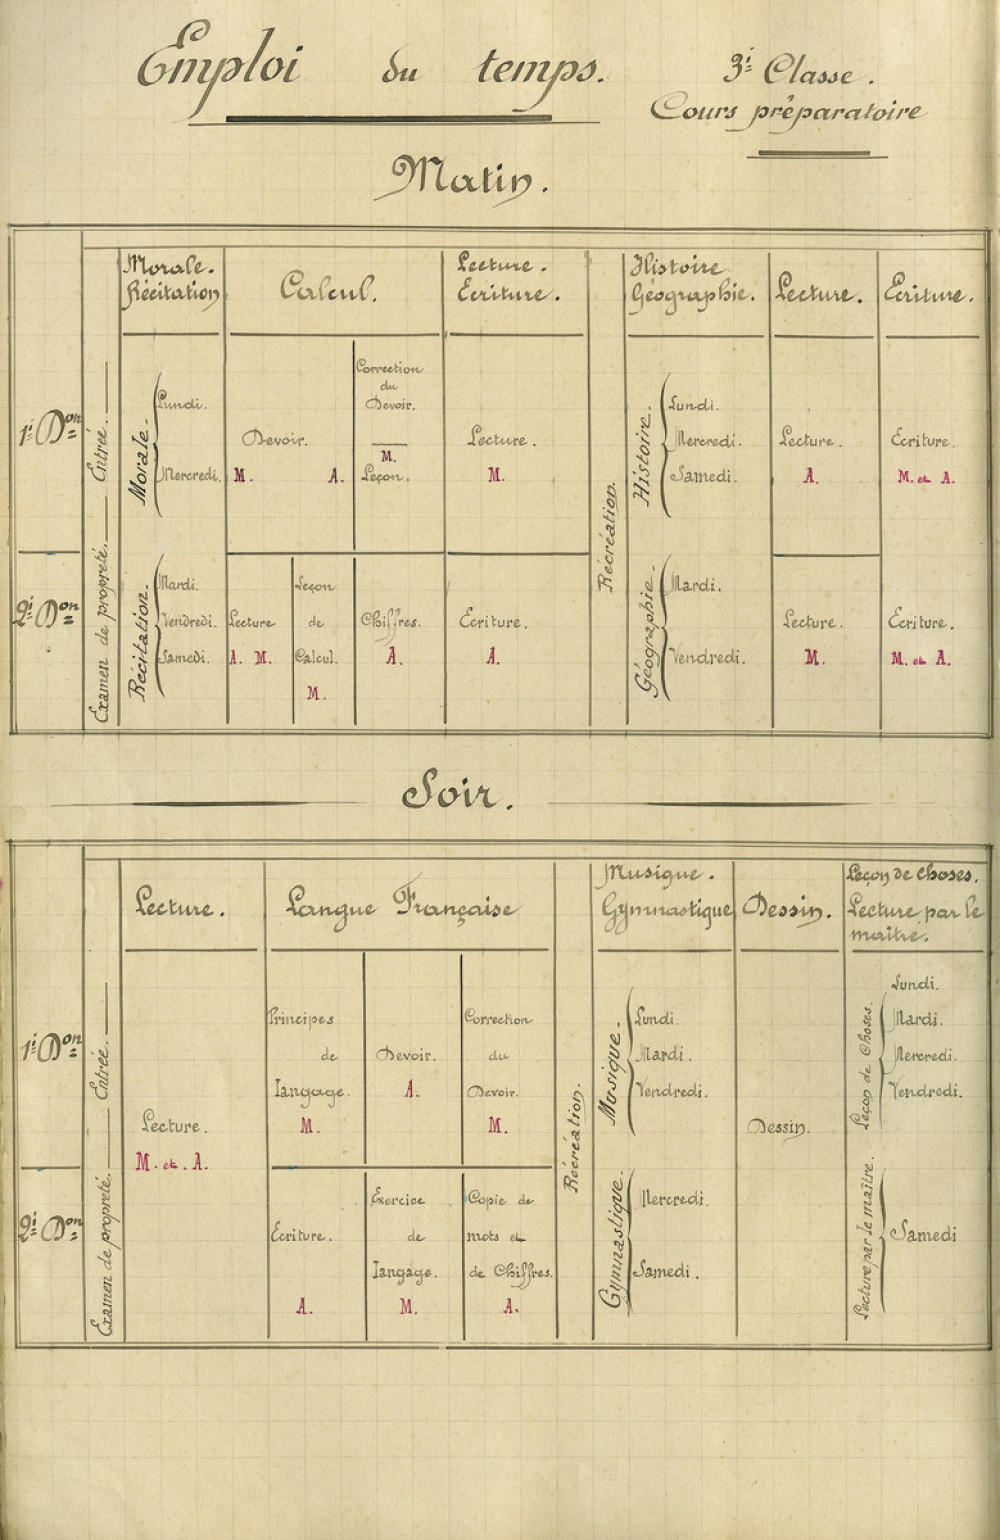 Emploi du temps.
3e Classe.
Cours préparatoire
Matin.
Morale.
Récitation
Calcul.
Lecture.
Ecriture.
Histoire
Géographie.
Lecture.
Ecriture.
1e Don
Examen de propreté. — Entrée. —
Morale.
Lundi.
Mercredi.
Devoir.
M. A.
Correction
du
Devoir.
M.
Leçon.
Lecture.
M.
Récréation.
Histoire.
Lundi.
Mercredi.
Samedi.
Lecture.
A.
Ecriture.
M. et A.
2e Don
Récitation.
Mardi.
Vendredi.
Samedi.
Lecture
A. M.
Leçon
de
Calcul.
M.
Chiffres.
A.
Ecriture.
A.
Géographie.
Mardi.
Vendredi.
Lecture.
M.
Ecriture.
M. et A.
Soir.
Lecture.
Langue Française
Musique.
Gymnastique
Dessin.
Leçon de choses.
Lecture par le
maître.
1e Don
Examen de propreté. — Entrée. —
Lecture.
M. et. A.
Principes
de
langage.
M.
Devoir.
A.
Correction
du
Devoir.
M.
Récréation.
Musique.
Lundi.
Mardi.
Vendredi.
Dessin.
Leçon de Choses.
Lundi.
Mardi.
Mercredi.
Vendredi.
2e Don
Ecriture.
A.
Exercice
de
langage.
M.
Copie de
mots et
de Chiffres.
A.
Gymnastique.
Mercredi.
Samedi.
Lecture par le maître.
Samedi